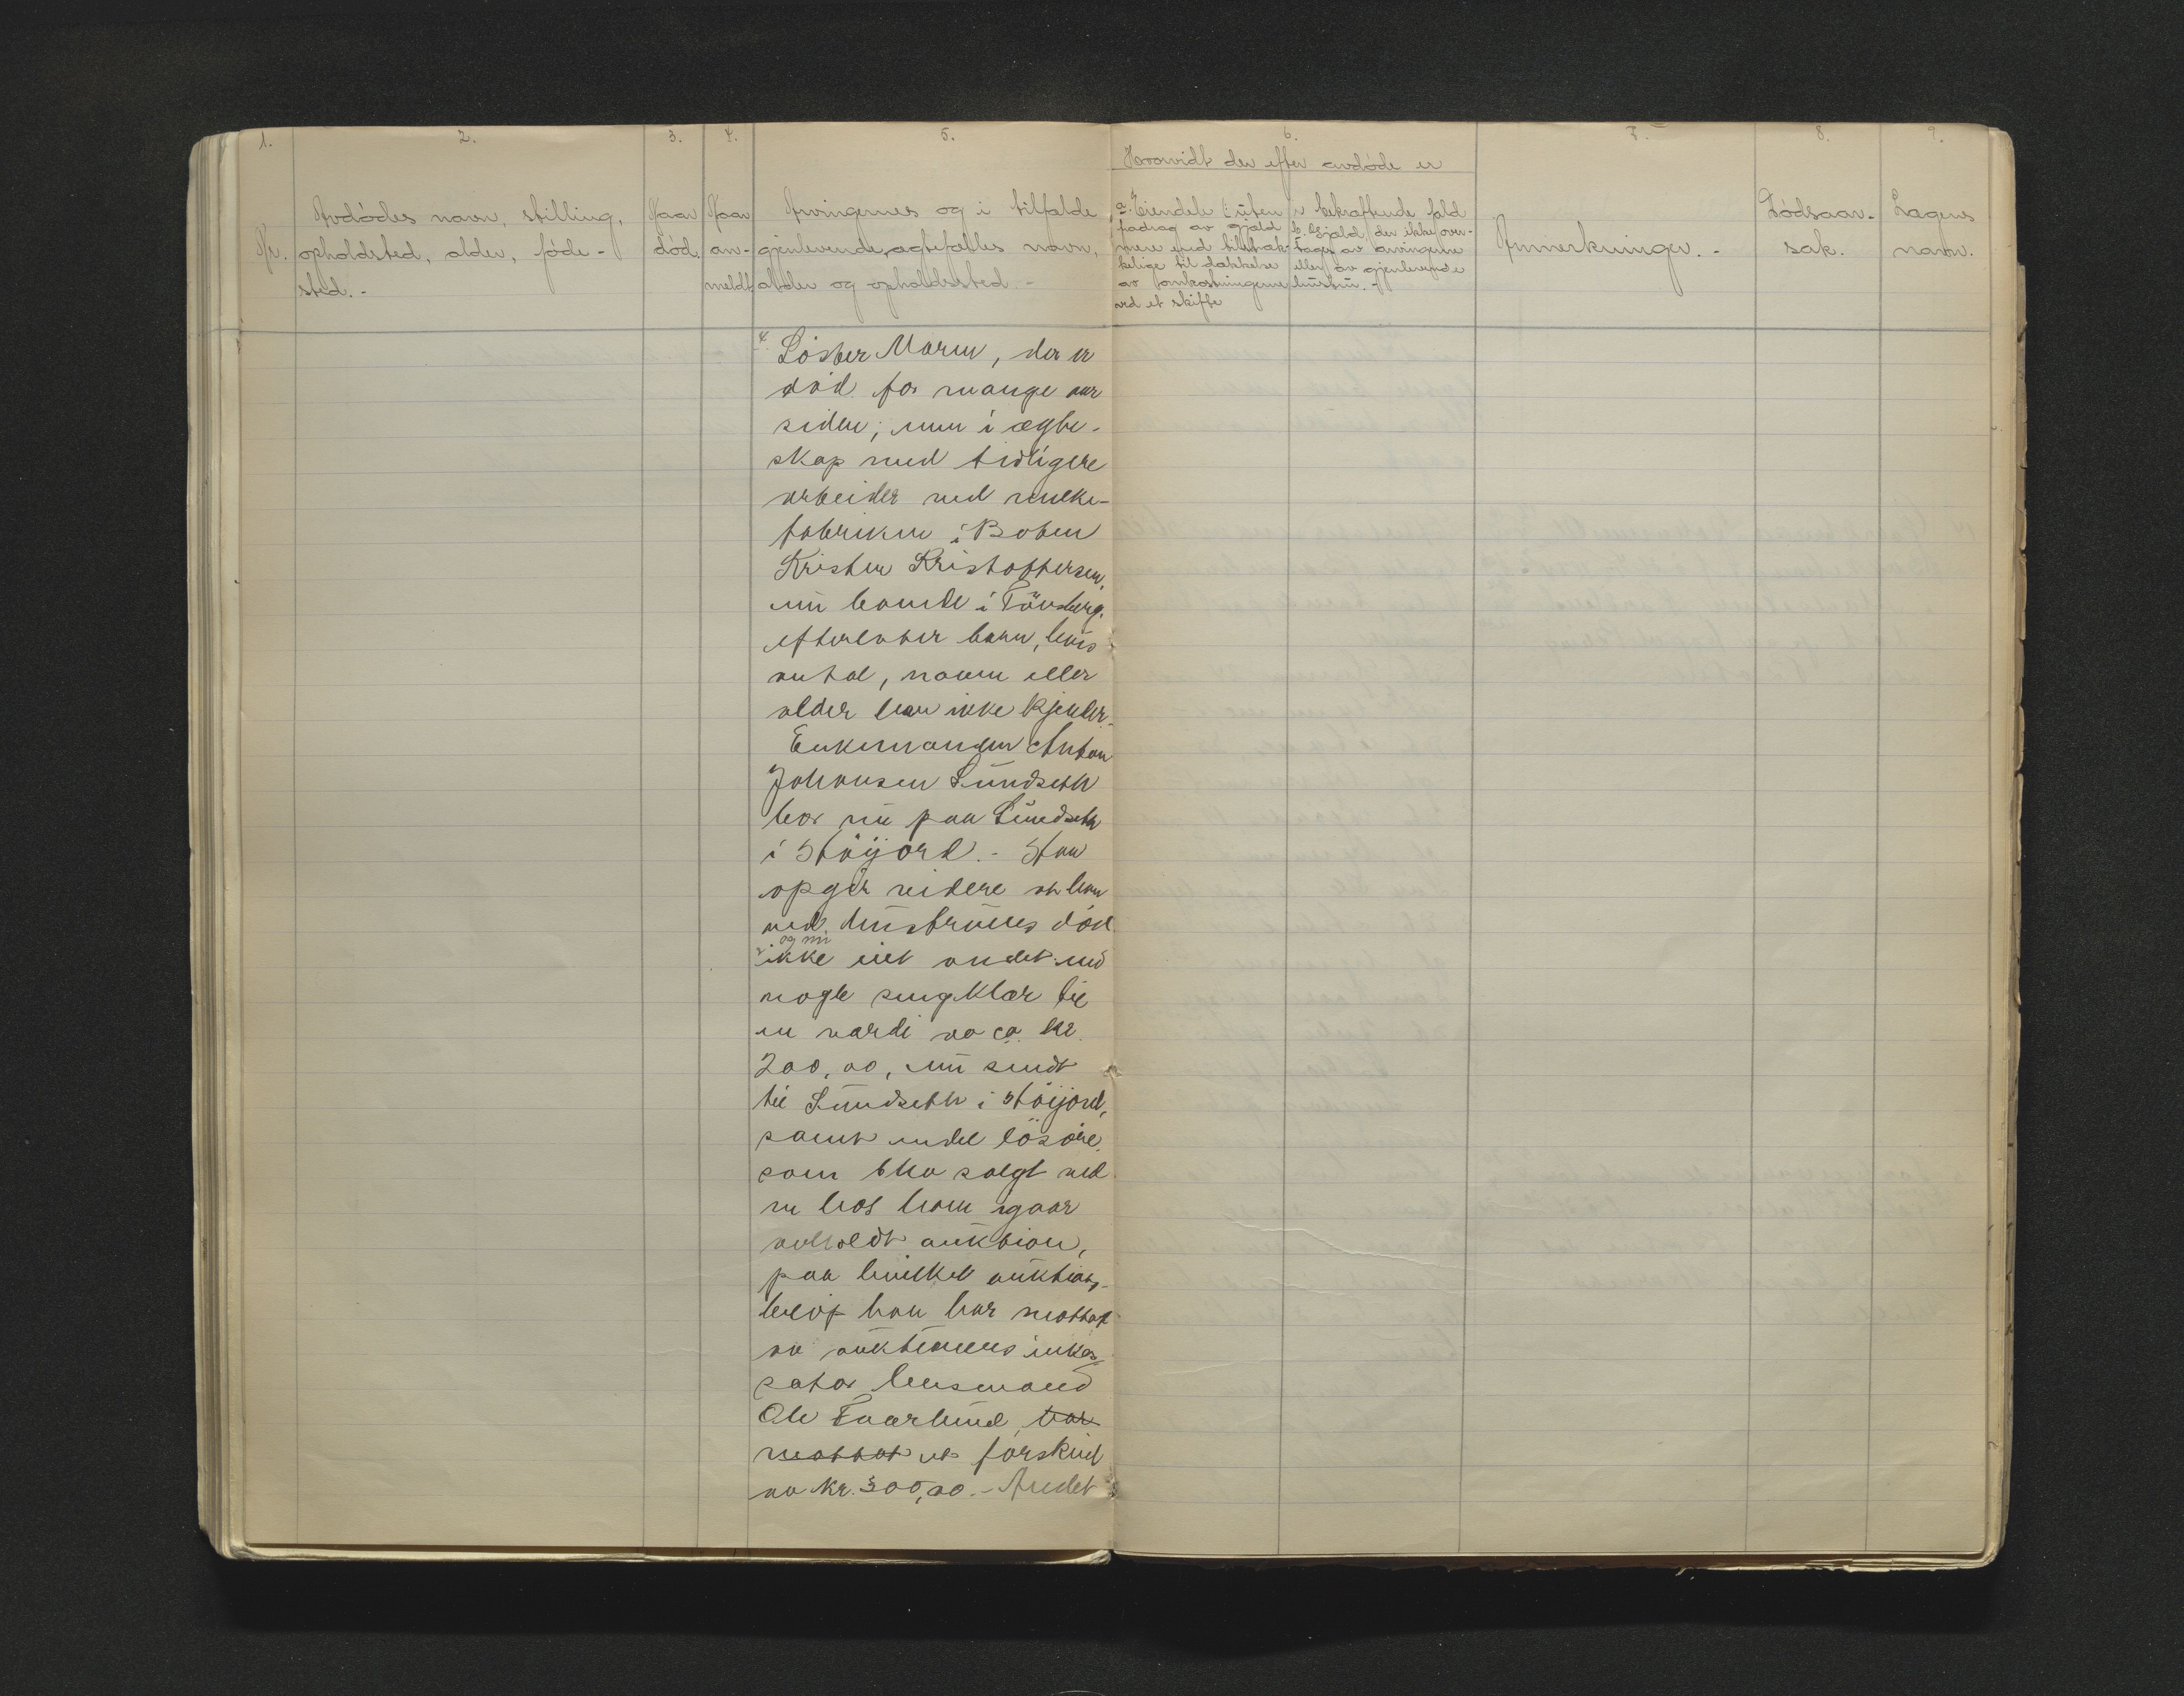 1. 2. 3. 4. 5. 6. 7. 8. 9.
Hvorvidt der efter avdöde er
Nr.
Avdödes navn, stilling,
opholdsted, alder, föde-
sted.-
Naar
död.
Naar
an-
meldt
Arvingernes og i tilfælde
gjenlevende ægtefælles navn,
alder og opholdssted.-
a. Eiendele uten
fradrag av gjæld
mere end tilstræk-
kelige til dækkelse
av omkostningerne
ved et skifte
i bekræftende fald
b. Gjæld der ikke over-
tages av arvingerne
eller av gjenlevende
hustru.-
Anmerkninger.-
Dödsaar-
sak.
Lagens
navn.
4. Söster Maren, der er
död for mange aar
siden; var i ægte-
skap med tidligere
arbeider ved melke-
fabriken i Boten
Kristen Kristoffersen,
nu boende i Tönsberg.
efterlater barn, hvis
antal, navn eller
alder han ikke kjender.
Enkemanden Anton
Johansen Lundseth
bor nu paa Lundseth
i Stöijord.- Han
opgir videre at han
ved hustruens död
og nu
ikke eiet andet end
nogle sengklær til
en værdi av ca. kr.
200,00, nu sendt
til Lundseth i Stöijord,
samt endel lösöre,
som blev solgt ved
en hos ham igaar
avholdt auktion,
paa hvilket auktions-
belöp han har mottat
av auktionens inkas-
sator lensmand
Ole Taarlund, har
mottat et forskud
av kr. 300,00.- Andet